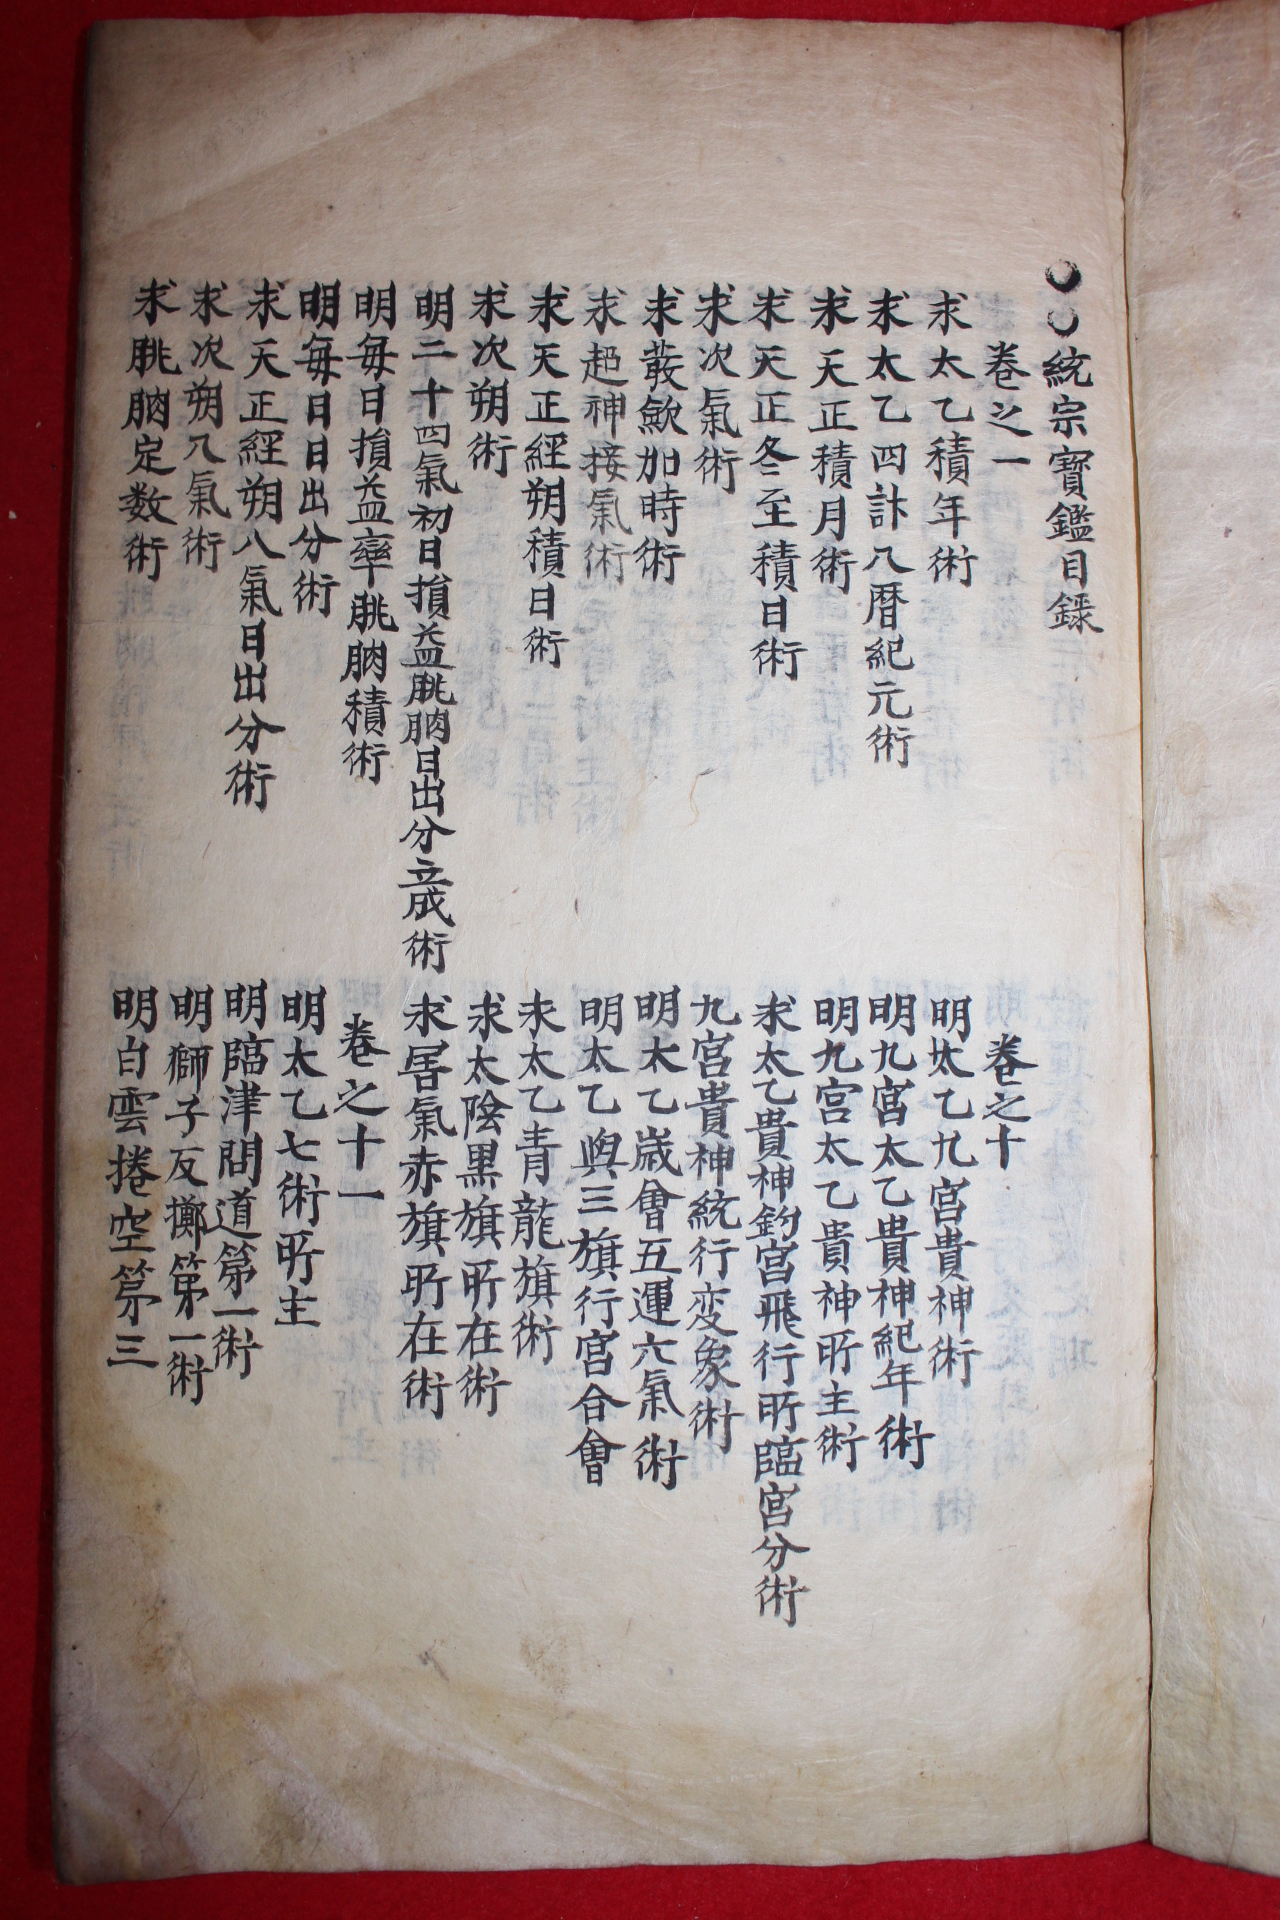 統宗寶鑑目録
卷之一
求太乙積年術
求太乙四計入暦紀元術
求天正積月術
求天正冬至積日術
求次氣術
求菆歛加時術
求超神接氣術
求天正經朔積日術
求次朔術
明二十四氣初日損益朓朒日出分立成術
明每日損益率朓朒積術
明每日日出分術
求天正經朔入氣日出分術
求次朔入氣術
求朓朒定数術
卷之十
明太乙九宮貴神術
明九宮太乙貴神紀年術
明九宮太乙貴神所主術
求太乙貴神釣宮飛行所臨宮分術
九宮貴神統行変象術
明太乙歲會五運六氣術
明太乙與三旗行宮合會
求太乙青龍旗術
求太陰黒旗所在術
求害氣赤旗所在術
卷之十一
明太乙七術所主
明臨津問道第一術
明獅子反擲第一術
明白雲捲空第三